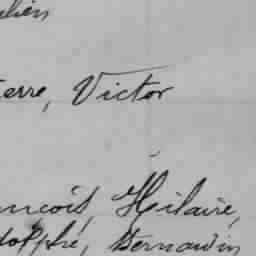 lien
erre, Victor
ncois, Hilaire,
dolphe, Bernardin